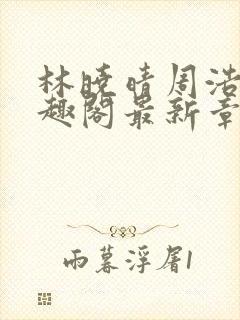 林晓晴周浩
趣阁最新章
雨暮浮屠1